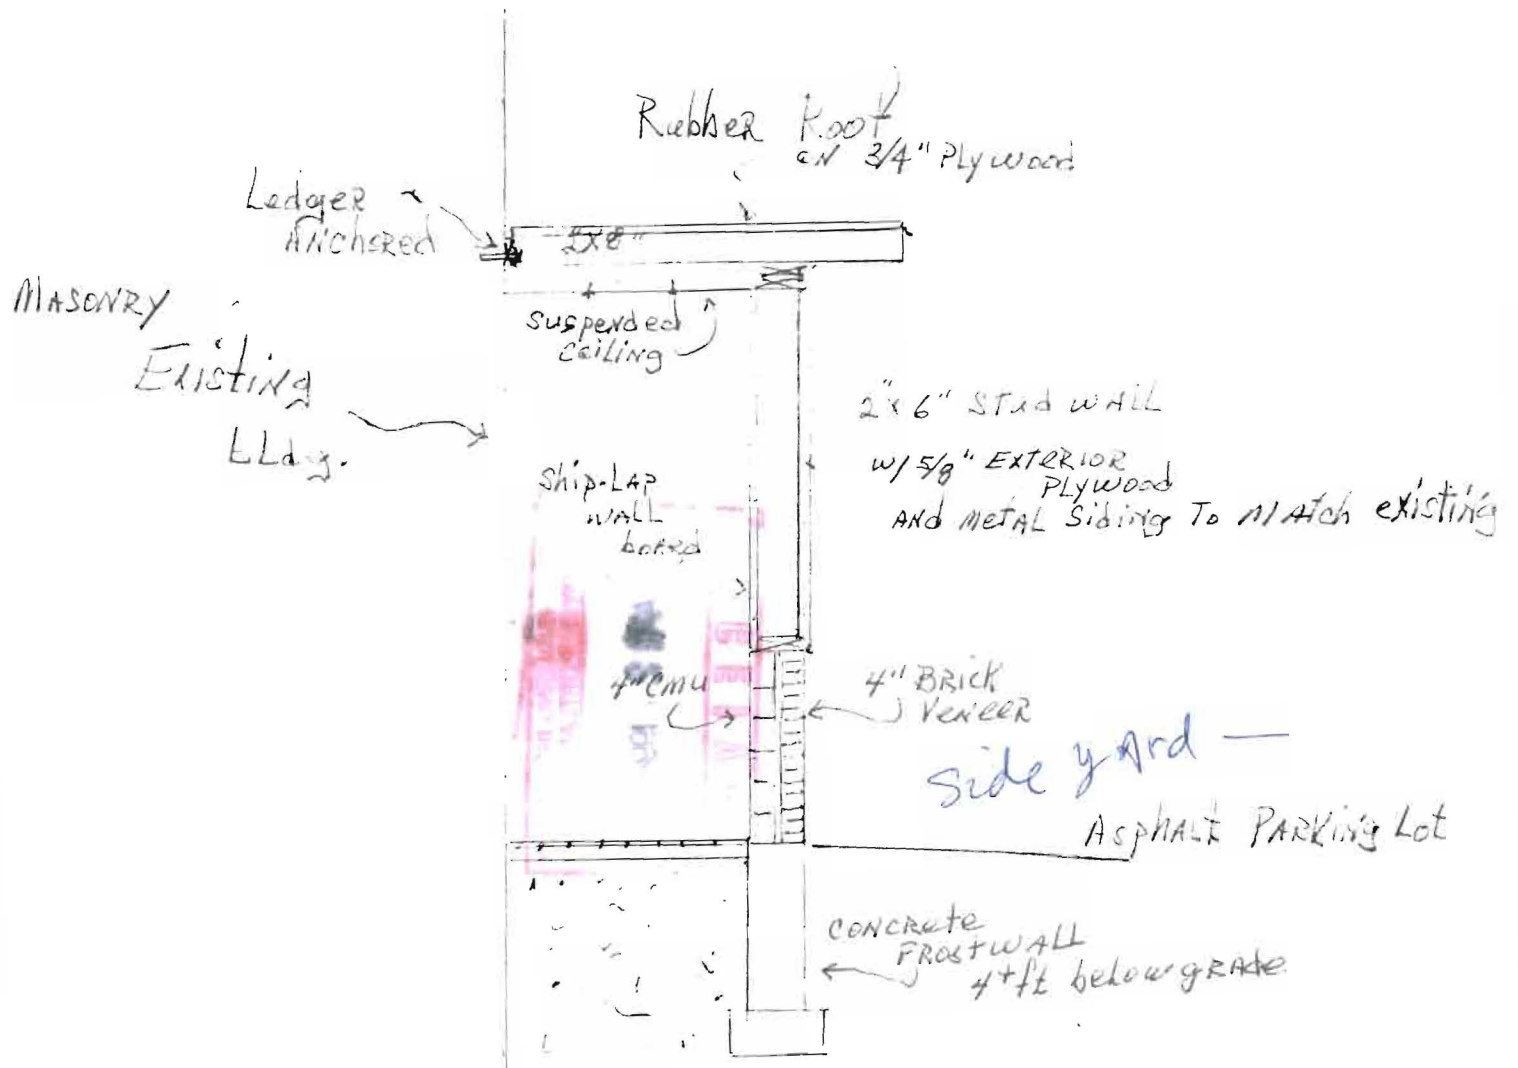 Rubber Roof
on 3/4" Plywood
Ledger
Anchored
2x8"
Masonry
Existing
Bldg.
Suspended
Ceiling
2"x6" Stud wall
w/ 5/8" Exterior
Plywood
And metal Siding To Match existing
Ship-Lap
wall
board
4" CMU
4" Brick
Veneer
Side yard —
Asphalt Parking Lot
Concrete
Frostwall
4+ft below grade